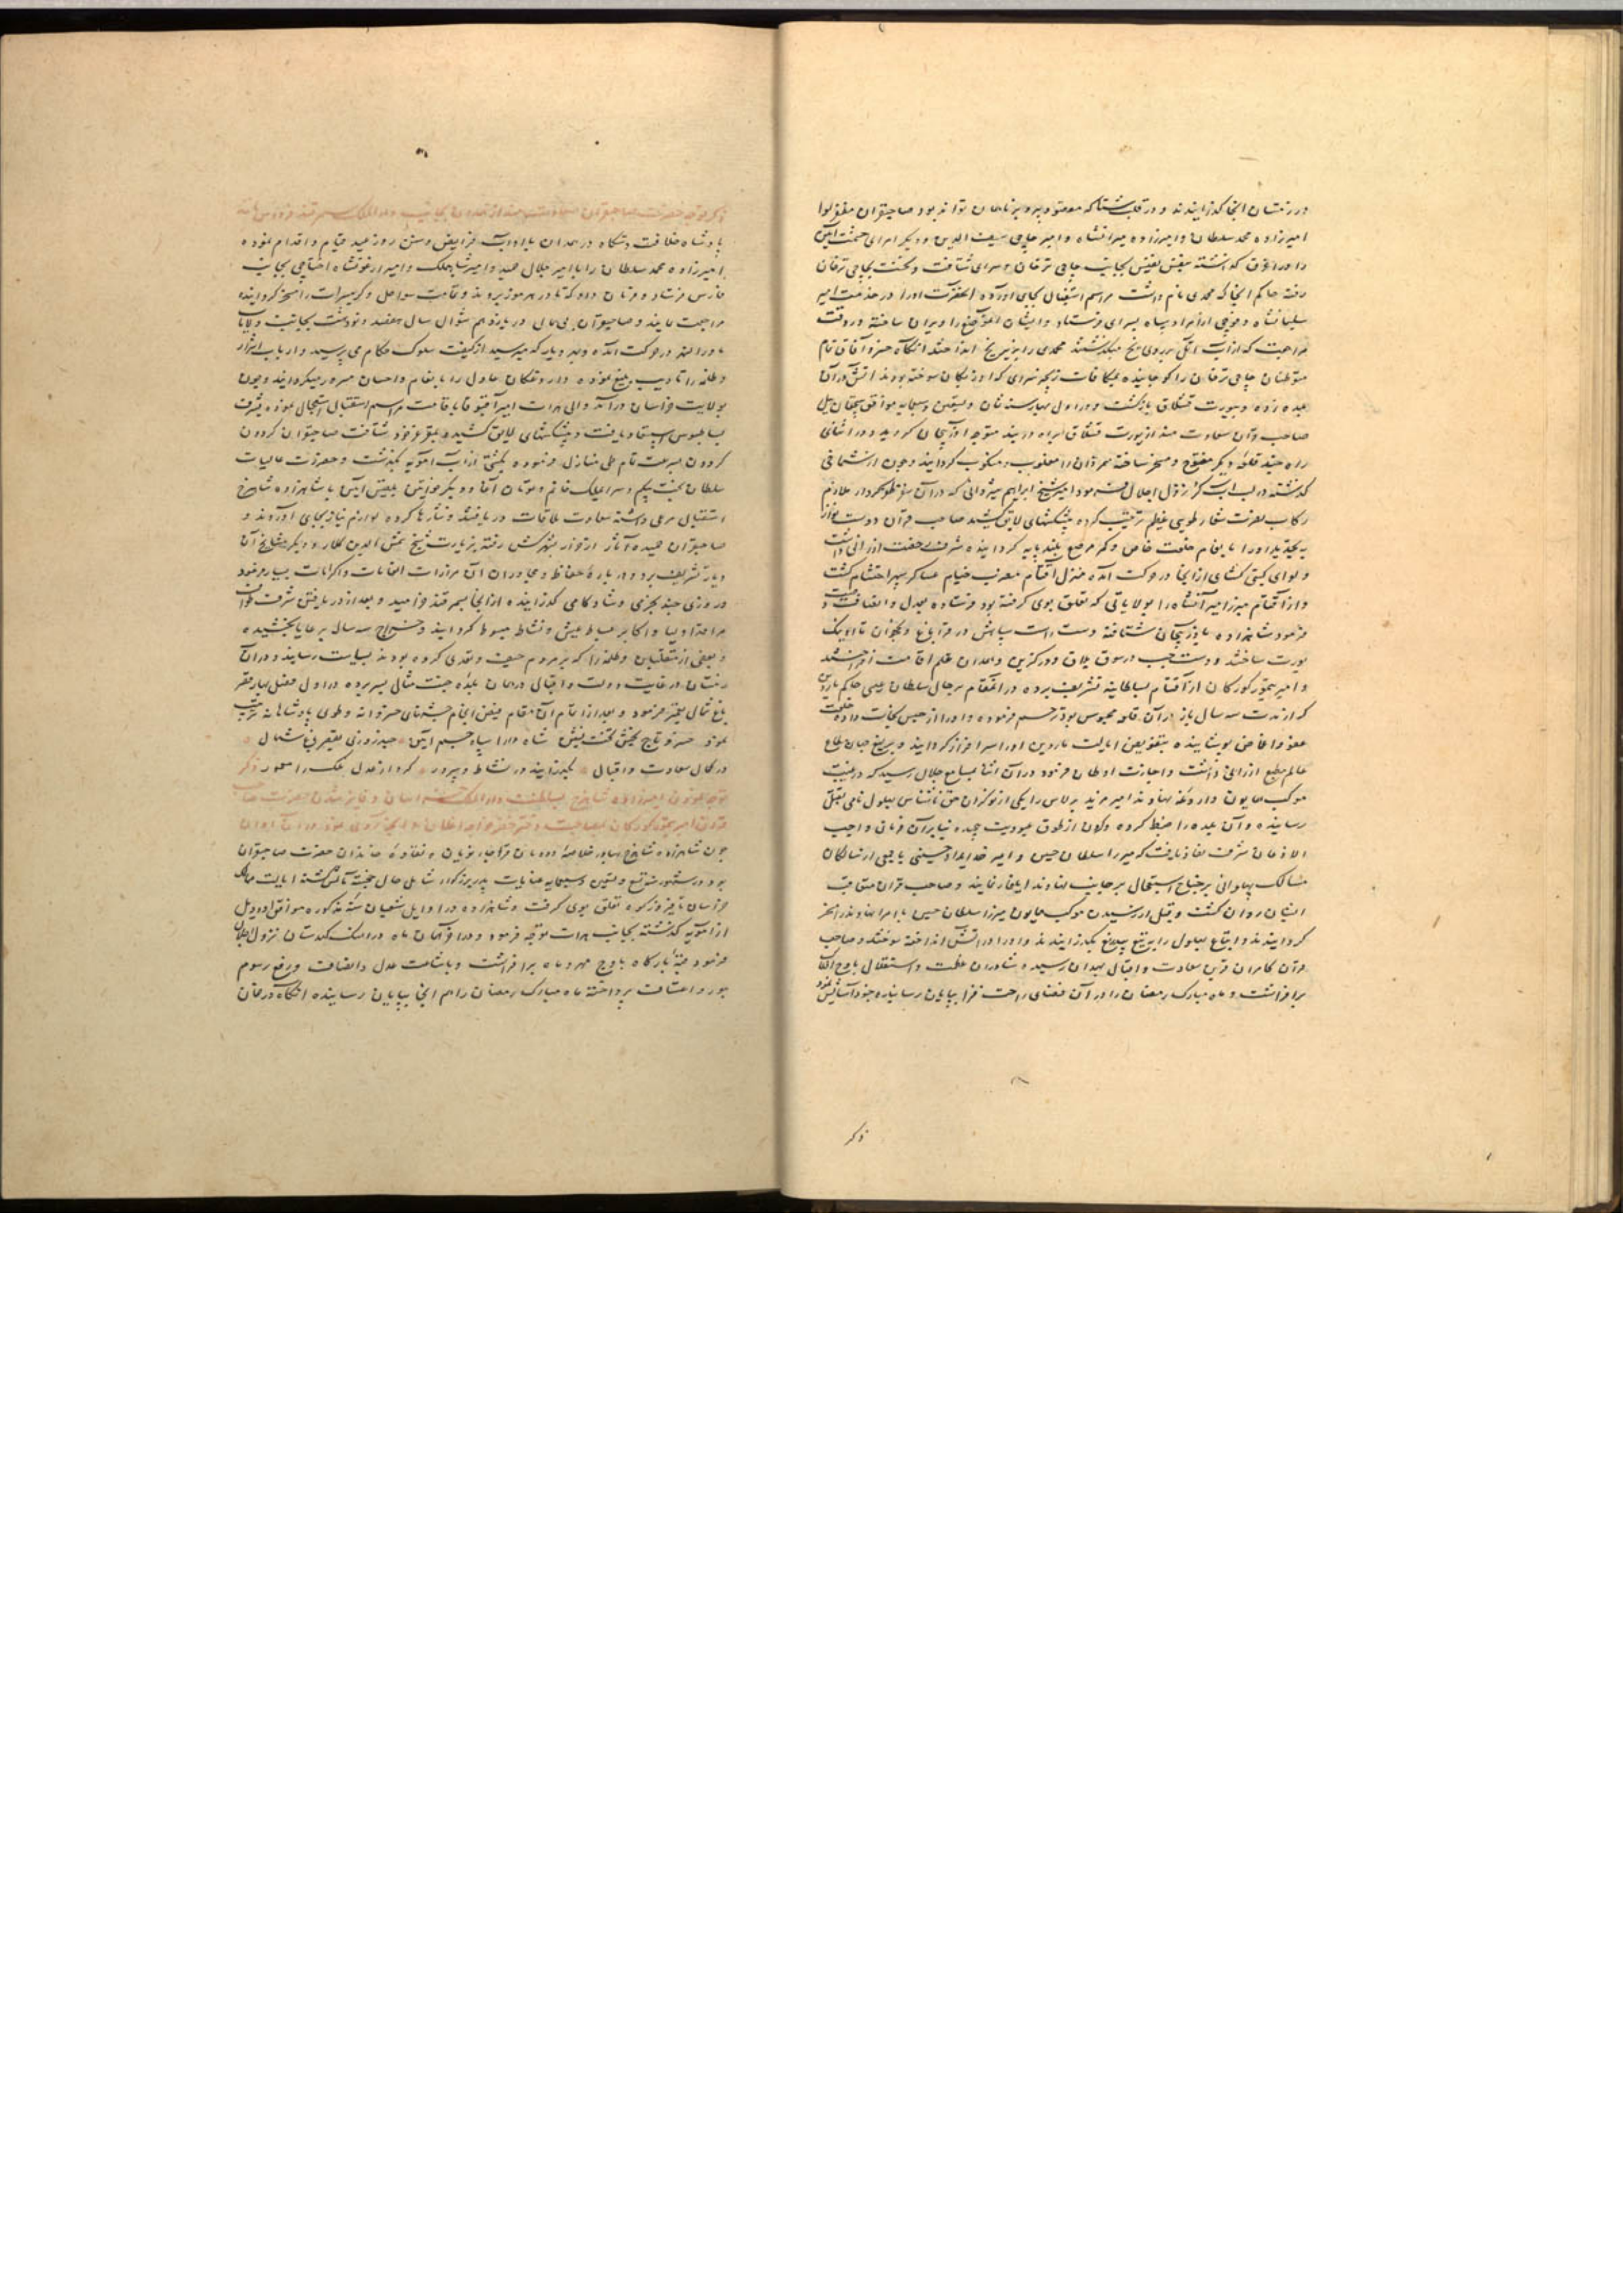 در زمستان انجا گذرانیدند و در قلب شتا که صاحبقران
امیرزاده محمد سلطان و امیرزاده میرانشاه و امیر حاجی سیف الدین و دیگر امرای
را در اغرق گذاشته بنفس نفیس بجانب حاجی ترخان و سرای شتافت و نخست بحاجی ترخان
رفته حاکم انجا که محمدی نام داشت مراسم استقبال بجای اورده انحضرت اورا در خدمت امیر
و فوجی از امرا و سپاه بسرای فرستاد و ایشان انموضع را ویران ساخته و در وقت
مراجعت که از آب اتل بر روی یخ میگذشتند محمدی را بزیر یخ انداختند انگاه خسرو آفاق تمام
متوطنان حاجی ترخان را کوچانیده بمکافات سرای که اوزبکان سوخته بودند اتش در آن
بلده زده و بیورت قشلاق بازگشت و در اول بهار سنه ثمان و تسعین و سبعمایه موافق ییل
صاحب قران سعادت مند از یورت قشلاق براه دربند متوجه اذربیجان گردید و در اثنای
راه چند قلعه دیگر مفتوح و مسخر ساخته را مغلوب و منکوب گردانید و چون از شماخی
گذشته در لب اب کر نزول اجلال فرمود امیر شیخ ابراهیم شیروانی که در آن سفر ملازم
رکاب نصرت شعار طویی عظیم ترتیب کرده پیشکشهای لایق کشید صاحب قران دوست نواز
بتجدید اورا بانعام خلعت خاص و کمر مرصع بلند پایه گردانیده شرف رخصت ارزانی داشت
و لوای گیتی گشای از انجا در حرکت آمده منزل آقتام مضرب خیام عساکر سپهر احتشام گشت
و از آقتام میرزا میرانشاه را بولایاتی که تعلق بوی گرفته بود فرستاده بعدل و انصاف
فرمود شاهزاده باذربیجان شتافته دست راست سپاهش در قراباغ و نخجوان تا اونیک
یورت ساختند و دست چب در سوق بلاق و درگزین و همدان علم اقامت افراختند
و امیر تیمور کورکان از آقتام بسلطانیه تشریف برده در آنمقام بر حال سلطان عیسی حاکم ماردین
که از مدت سه سال باز در آن قلعه محبوس بود ترحم فرموده و اورا از حبس نجات داده
عفو و اغماض پوشانیده بتفویض ایالت ماردین اورا سرافراز گردانید و یرلیغ جهان مطاع
عالم مطیع ارزانی داشت و اجازت اوطان فرمود در آن اثنا بمسامع جلال رسید که در غیبت
موکب همایون داروغه نهاوند امیر مزید برلاس را یکی از نوکران حق ناشناس بهلول نامی بقتل
رسانیده و آن بلده را ضبط کرده و گردن از طوق عبودیت پیچیده بنا بر آن فرمان واجب
الاذعان شرف نفاذ یافت که میرزا سلطان حسین و امیر خداداد حسینی با جمعی از سالکان
مسالک پهلوانی بر جناح استعجال بر جانب نهاوند ایلغار نمایند و صاحب قران متعاقب
ایشان روان گشت و قبل از رسیدن موکب همایون میرزا سلطان حسین با امرا نهاوند را مسخر
گردانیدند و اتباع بهلول را به تیغ بیدریغ بگذرانیدند و اورا در اتش انداخته سوختند و صاحب
قران کامران قرین سعادت و اقبال بهمدان رسیده شادروان عظمت و استقلال باوج افلاک
برافراشت و ماه مبارک رمضان را در آن فضای راحت فزا بپایان رسانیده
ذکر
ذکر توجه حضرت صاحبقران سعادتمند از همدان بجانب دارالملک سمرقند فردوس مانند
پادشاه خلافت دستگاه در همدان باداب فرایض و سنن روز عید قیام و اقدام نموده
امیرزاده محمد سلطان را با امیر جلال حمید و امیر شاه ملک و امیر ارغونشاه اختاجی بجانب
فارس فرستاد و فرمان داد که تا در هرموز بروند و تمامت سواحل و گرمسیرات را مسخر گردانیده
مراجعت نمایند و صاحبقران در یازدهم شوال سال هفصد و نود هشت بجانب ولایت
ماورا النهر در حرکت آمده و بهر دیار که میرسید از کیفیت سلوک حکام می پرسید و ارباب اشرار
و ظلمه را تادیب بلیغ نموده داروغکان عادل را بانعام و احسان مسرور میگردانید و چون
بولایت خراسان درآمد والی هرات امیر آقبوقا باقامت مراسم استقبال استعجال نموده بشرف
بساطبوس استسعاد یافت و پیشکشهای لایق کشید و بمقر عز خود شتافت صاحبقران گردون
بسرعت تمام طی منازل فرموده بکشتی از آب آمویه بگذشت و حضرات عالیات
سلطان بخت بیگم و سرای ملک خانم و تومان آغا و دیگر خواتین بلقیس آیین با شاهزاده شاهرخ
استقبال مرعی داشته سعادت ملاقات دریافتند و نثارها کرده لوازم نیاز بجای آوردند و
صاحبقران حمیده آثار از بشهر کش رفته بزیارت شیخ شمس الدین کلار و دیگر مشایخ آن
دیار تشریف برد و در باره حفاظ و مجاوران آن مزارات انعامات و اکرامات بسیار فرمود
و روزی چند بخرمی و شادکامی گذرانیده از انجا بسمرقند خرامید و بعد از دریافتن شرف
اولیا و اکابر بساط عیش و نشاط مبسوط گردانید و خراج سه سال برعایا بخشیده
و بعضی از متغلبان و ظلمه را که بر مردم حیف و تعدی کرده بودند بسیاست رسانید و در آن
زمستان در غایت دولت و اقبال در همان بلده جنت مثال بسر برده در اول فصل بهار مقر
باغ شمال فرمود و بعد از اتمام آن مقام جشنهای خسروانه و طوی پادشاهانه ترتیب
نمود خسرو تاج بخش تخت نشین شاه دارا سپاه جم آیین چند روزی بقصر باغ شمال
در کمال سعادت و اقبال بگذرانید در نشاط و سرور کرد از عدل ملک را معمور ذکر
توجه نمودن امیرزاده شاهرخ بسلطنت دارالملک خراسان و فایز شدن حضرت صاحب
قران امیر تیمور کورکان بمصاحبت دختر خضر خواجه اغلان و آنچه روی نمود در آن اوان
چون شاهزاده شاهرخ بهادر خلاصه دودمان قراچار نویان و نقاوه خاندان حضرت صاحبقران
بود در شهور تسع و تسعین و سبعمایه عنایت پدر بزرگوار شامل حال خجسته مآلش گشته ایالت ممالک
خراسان تا فیروزکوه تعلق بوی گرفت و شاهزاده در اوایل شعیان سنه مذکوره موافق اود ییل
از آمویه گذشته بجانب هرات توجه فرمود و در اواخر همان ماه در النک کهدستان نزول اجلال
فرمود قبه بارگاه باوج مهر و ماه برافراشت و باشاعت عدل و انصاف و رفع رسوم
جور و اعتساف پرداخته ماه مبارک رمضان را هم آنجا بپایان رسانیده انگاه در همان